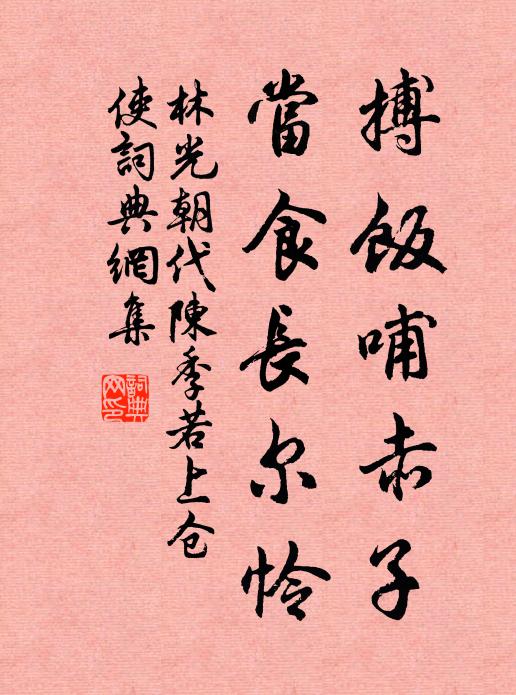 搏飯哺赤子
當食長尔怜
林光朝代陳季若上仓
使詞典網集
詞典网印